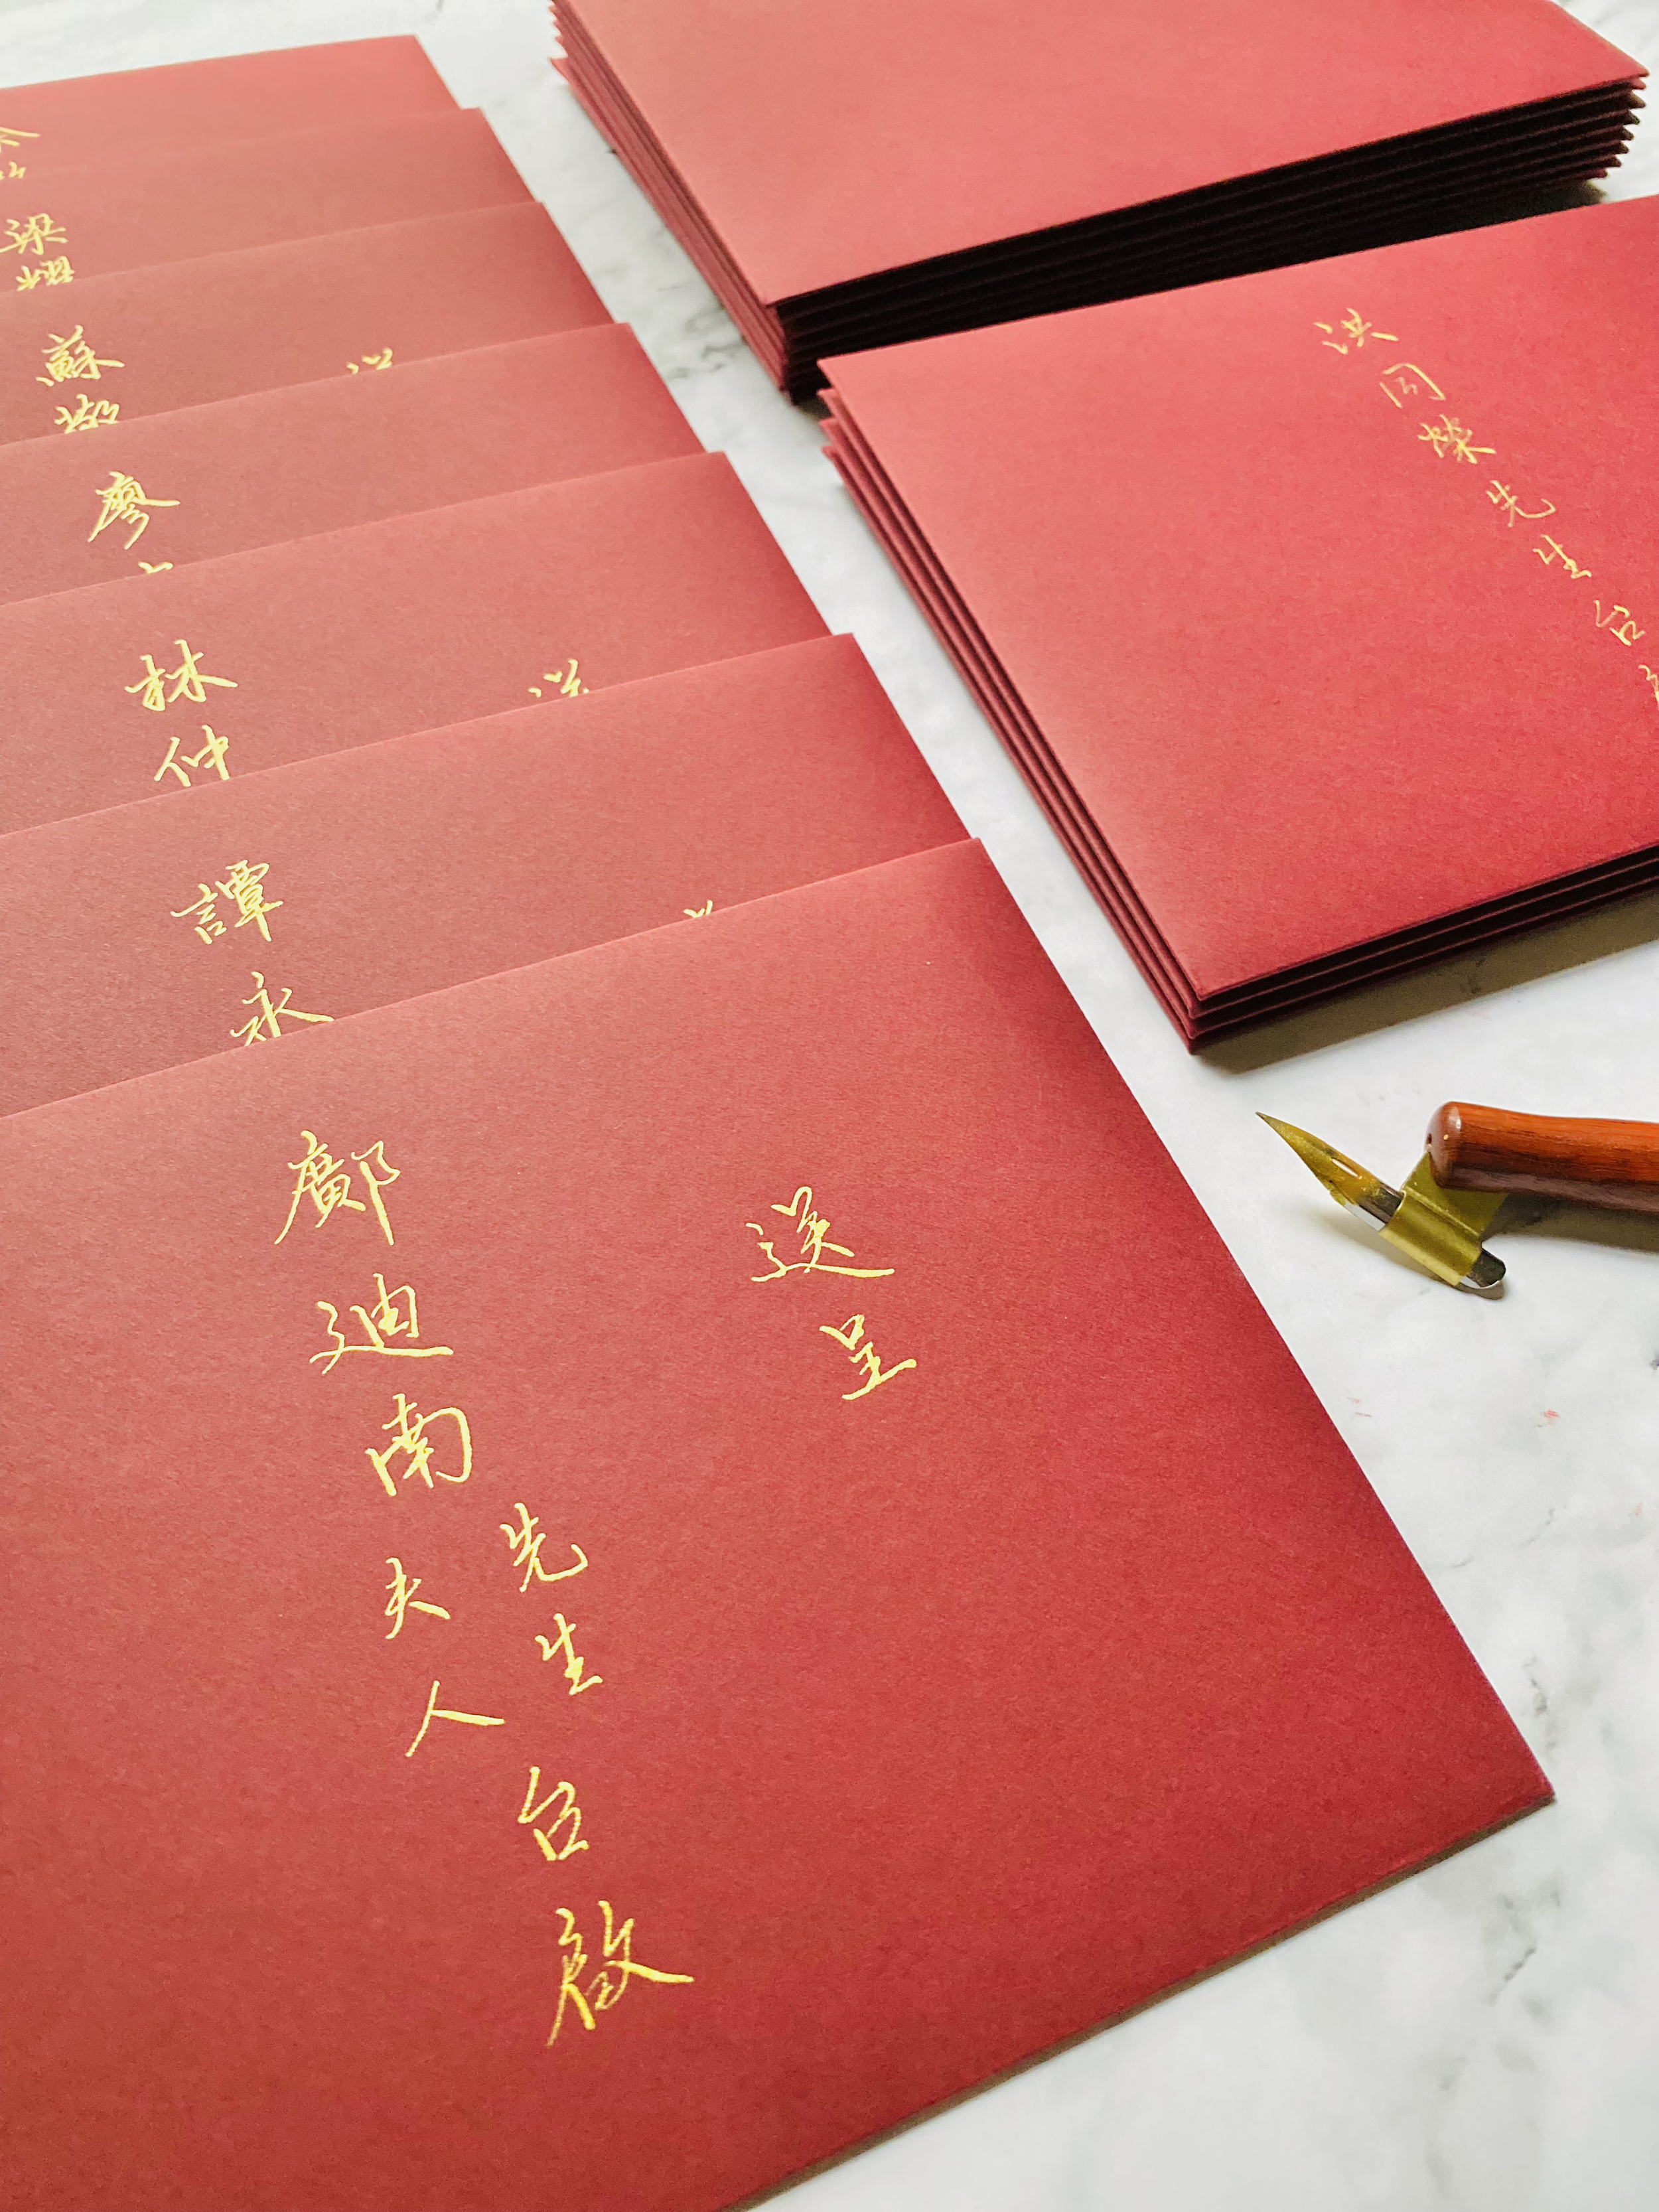 送呈
鄺廸南先生夫人台啟
譚永
林仲
廖
蘇
梁
洪同榮先生台